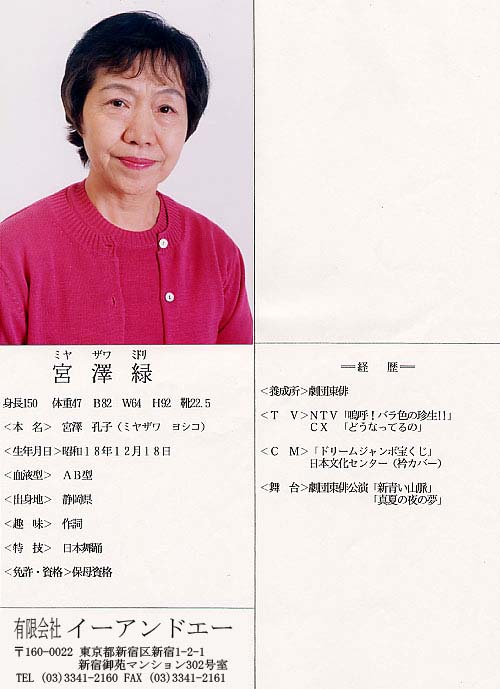 ミヤ ザワ ミドリ
宮 澤 緑
身長150 体重47 B82 W64 H92 靴22.5
＜本 名＞ 宮澤 孔子（ミヤザワ ヨシコ）
＜生年月日＞昭和18年12月18日
＜血液型＞ AB型
＜出身地＞ 静岡県
＜趣 味＞ 作詞
＜特 技＞ 日本舞踊
＜免許・資格＞保母資格
有限会社 イーアンドエー
〒160-0022 東京都新宿区新宿1-2-1
新宿御苑マンション302号室
TEL (03)3341-2160 FAX (03)3341-2161
＝経 歴＝
＜養成所＞劇団東俳
＜T V＞NTV「嗚呼！バラ色の珍生!!」
CX 「どうなってるの」
＜C M＞「ドリームジャンボ宝くじ」
日本文化センター（衿カバー）
＜舞 台＞劇団東俳公演「新青い山脈」
「真夏の夜の夢」